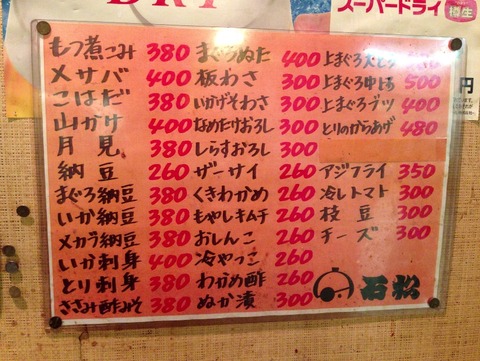 DRY
スーパードライ
樽生
もつ煮こみ 380
メサバ 400
こはだ 380
山かけ 400
月見 380
納豆 260
まぐろ納豆 380
いか納豆 380
メカブ納豆 380
いか刺身 400
とり刺身 380
ささみ酢みそ 380
まぐろぬた 400
板わさ 300
いかげそわさ 300
なめたけおろし 300
しらすおろし 300
ザーサイ 260
くきわかめ 260
もやしキムチ 260
おしんこ 260
冷やっこ 260
わかめ酢 260
ぬか漬 300
上まぐろ
上まぐろ中トロ 500
上まぐろブツ 400
とりのからあげ 480
アジフライ 350
冷しトマト 300
枝豆 300
チーズ 300
石松
円